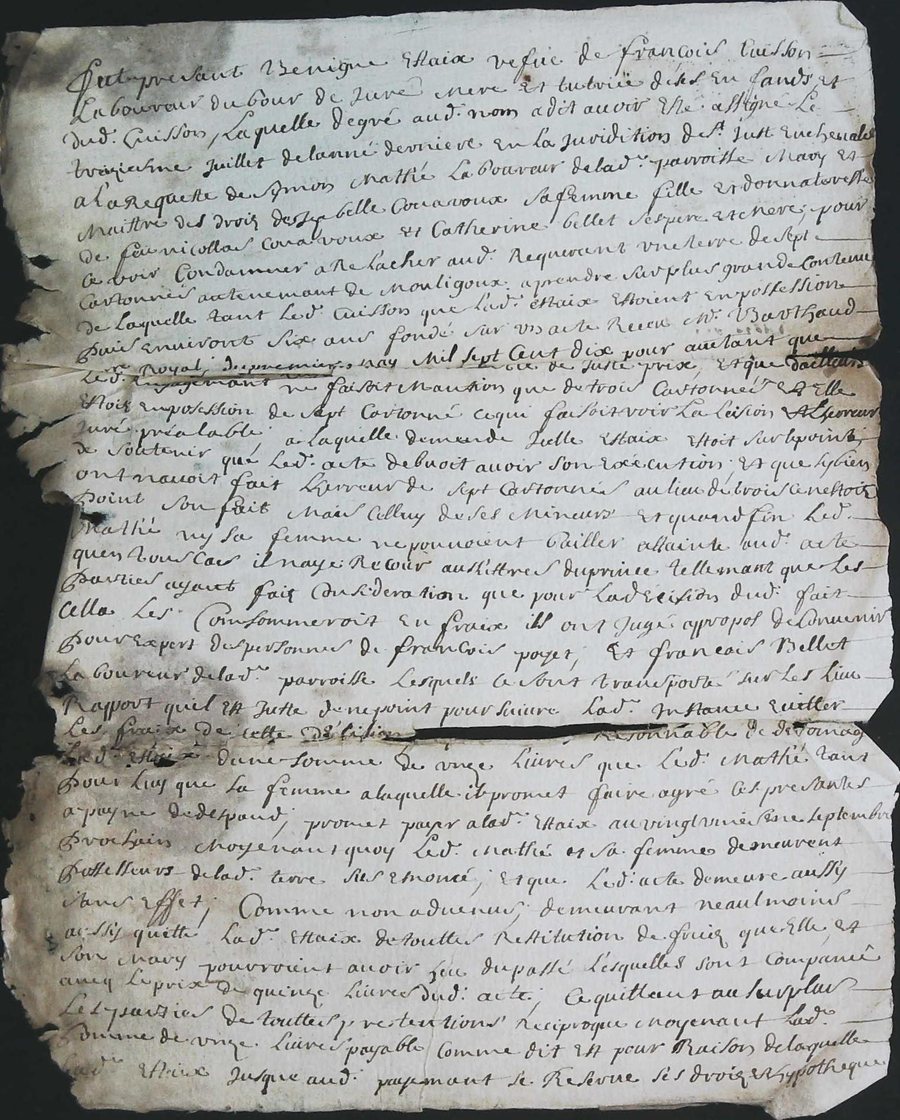 Fut presant Benigne Estaix vefue de françois Cuisson
Laboureur du bour de Juré mere et tutrice de ses enfands et
dud. Cuisson, Laquelle degré aud. nom a dit auoir esté assigné Le
treziesme Juillet delanné derniere en La Juridition de St. Just en cheualet
a La Requette de Symon Mathé Laboureur delad. parroisse mary et
maistre des droiz de Isabelle Couavoux sa femme fille et donnateresse
de feu nicollas Couavoux et Catherine bellet ses pere et mere, pour
ce voir Condamner a Relacher aud. Requerant vne terre de sept
Cartonnés au tenemant de Mouligoux, a prendre sur plus grande Contenue
de Laquelle tant Led. Cuisson que Lad. Estaix estoient en possession
puis enuiront six ans fondé sur un acte Receu Me. Barthaud
No. Royal, du premier may mil sept Cent dix pour autant que
Led. de Juste prix, et que dailleurs
ne faisoit mantion que de trois Cartonnés et elle
estoiz en possession de sept Cartonné ce qui faisoit voir La Lesion et Lerreur
Juré préalable, a laquelle demende Jcelle Estaix estoit sur le point
de soutenir que Led. acte debuoit auoir son exécution, et que sy bien
ont nauoit fait Lerreur de sept Cartonnés au lieu de trois ce nestoiz
point son fait mais Celluy de ses mineurs et quand fin Led.
Mathé ny sa femme ne pouuoient bailler attainte aud. acte
quen tous cas il naye Recour aux Lettres du prince tellemant que Les
parties ayant faiz Consideration que pour La decision dud. fait
Cella Les Consommeroit en fraix ils ont Jugé appropos de Conuenir
pour expert des personnes de françois poyet, et francois Bellet
Laboureur delad. parroisse Lesquels ce sont transporté sur Les Lieu
Rapport quil est Juste de ne point poursuivre Lad. Instance euiter
Les fraix de cette décision Resonnable de dedomager
Lad. Estaix dune somme de vnze Liures que Led. Mathé tant
pour Luy que sa femme a laquelle il promet faire agré ces presantes
a payne de despand, promet payer a lad. Estaix au vingt uniesme septembre
prochain moyenant quoy Led. Mathé et sa femme demeurent
posesseurs delad. terre sus enoncé, et que Led. acte demeure aussy
sans effet, Comme non aduenus, demeurant neaulmoins
acssy quitte Lad. Estaix de touttes Restitution de fruiz que elle, et
son mary pourroint auoir heu du passé Lesquelles sont Compancé
aueq Le prix de quinze Liures dud. acte, Ce quittant au surplus
Les parties de touttes pretentions Reciproque moyenant Lad.
somme de vnze Liures payable Comme dit est pour Raison de laquelle
Lad. Estaix Jusque aud. payemant se Reserue ses droiz et hypotheque